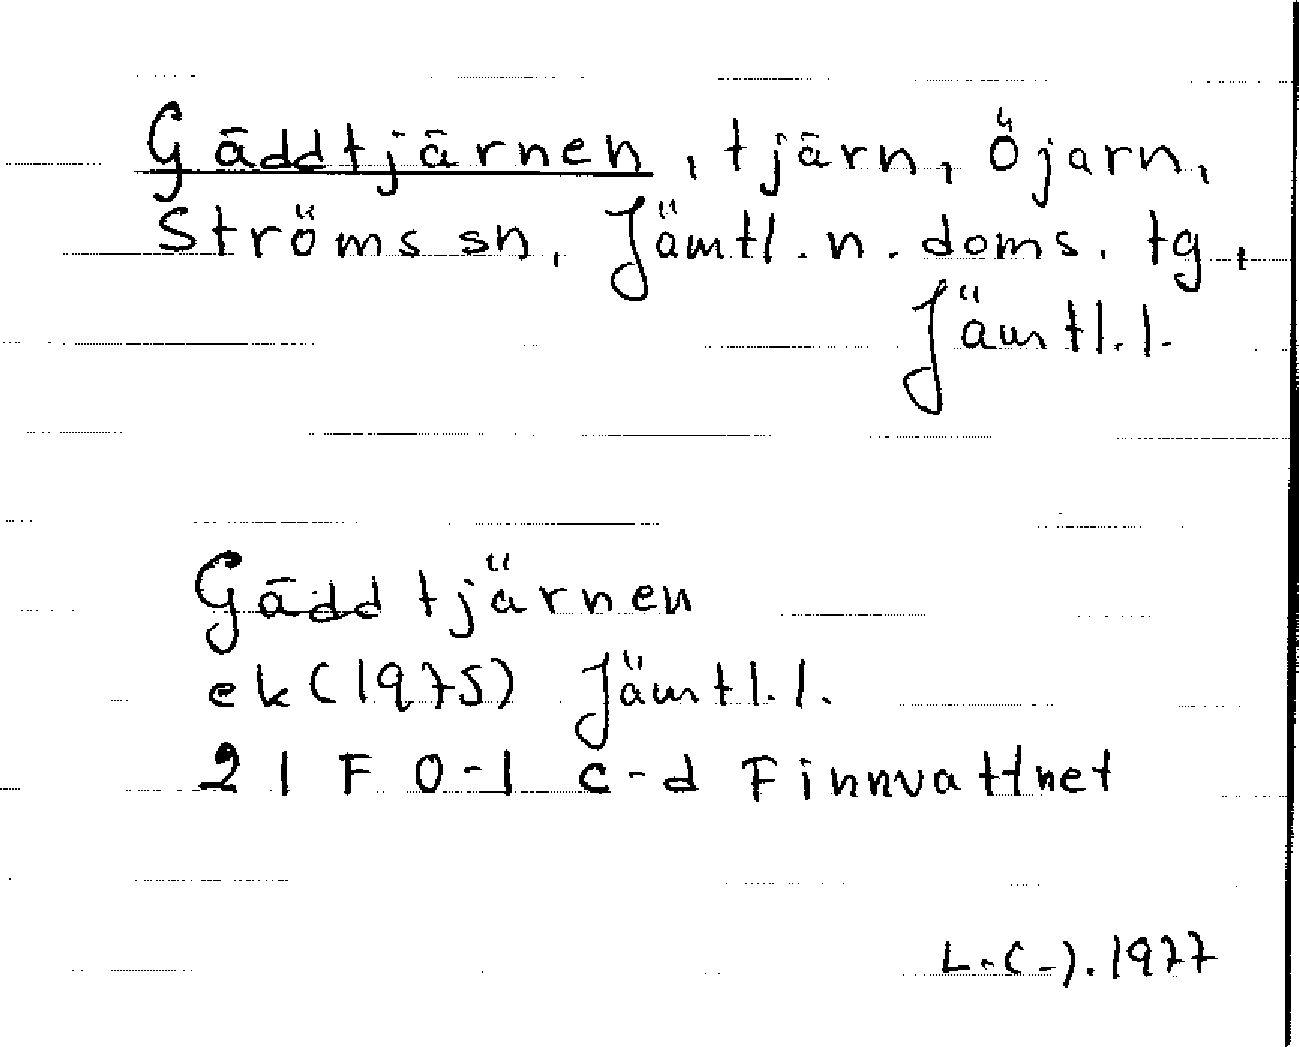 Gäddtjärnen, tjärn, Öjarn,
Ströms sn, Jämtl. n. doms. tg,
Jämtl. l.
Gäddtjärnen
ek (1975) Jämtl. l.
21 F 0-1 c-d Finnvattnet
L.(-). 1977